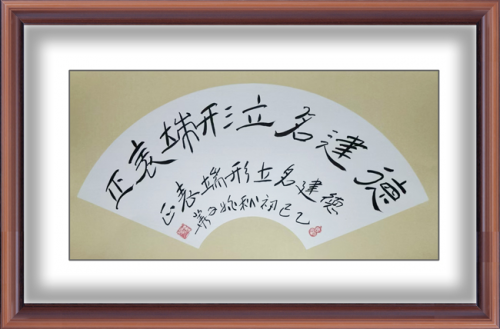 德建名立形端表正
德建名立形端表正
乙巳初秋